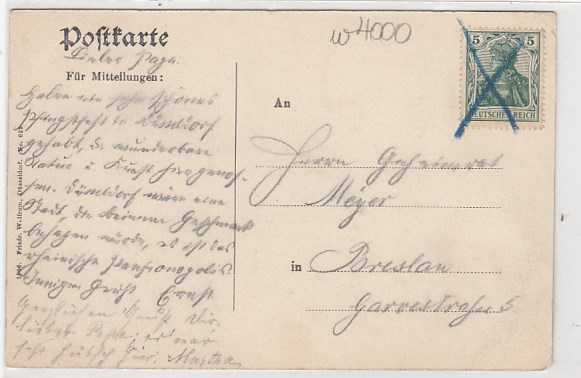 Postkarte
Lieber Papa.
Für Mitteilungen:
Haben ein sehr schönes
Pfingstfest in Düsseldorf
gehabt, die wunderbare
Natur u Kunst sehr genos-
sen. Düsseldorf wäre eine
Stadt, die Deinem Geschmack
behagen würde, es ist das
rheinische Pensionopolis
Innigen Gruß Ernst
Herzlichen Gruß Dir,
liebster Papa; es war
sehr hübsch hier. Martha
Friedr. Wolfrum, Düsseldorf. No.
w4000
5 5
DEUTSCHES REICH
An
Herrn Geheimrat
Meyer
in Breslau
Garvestraße 5